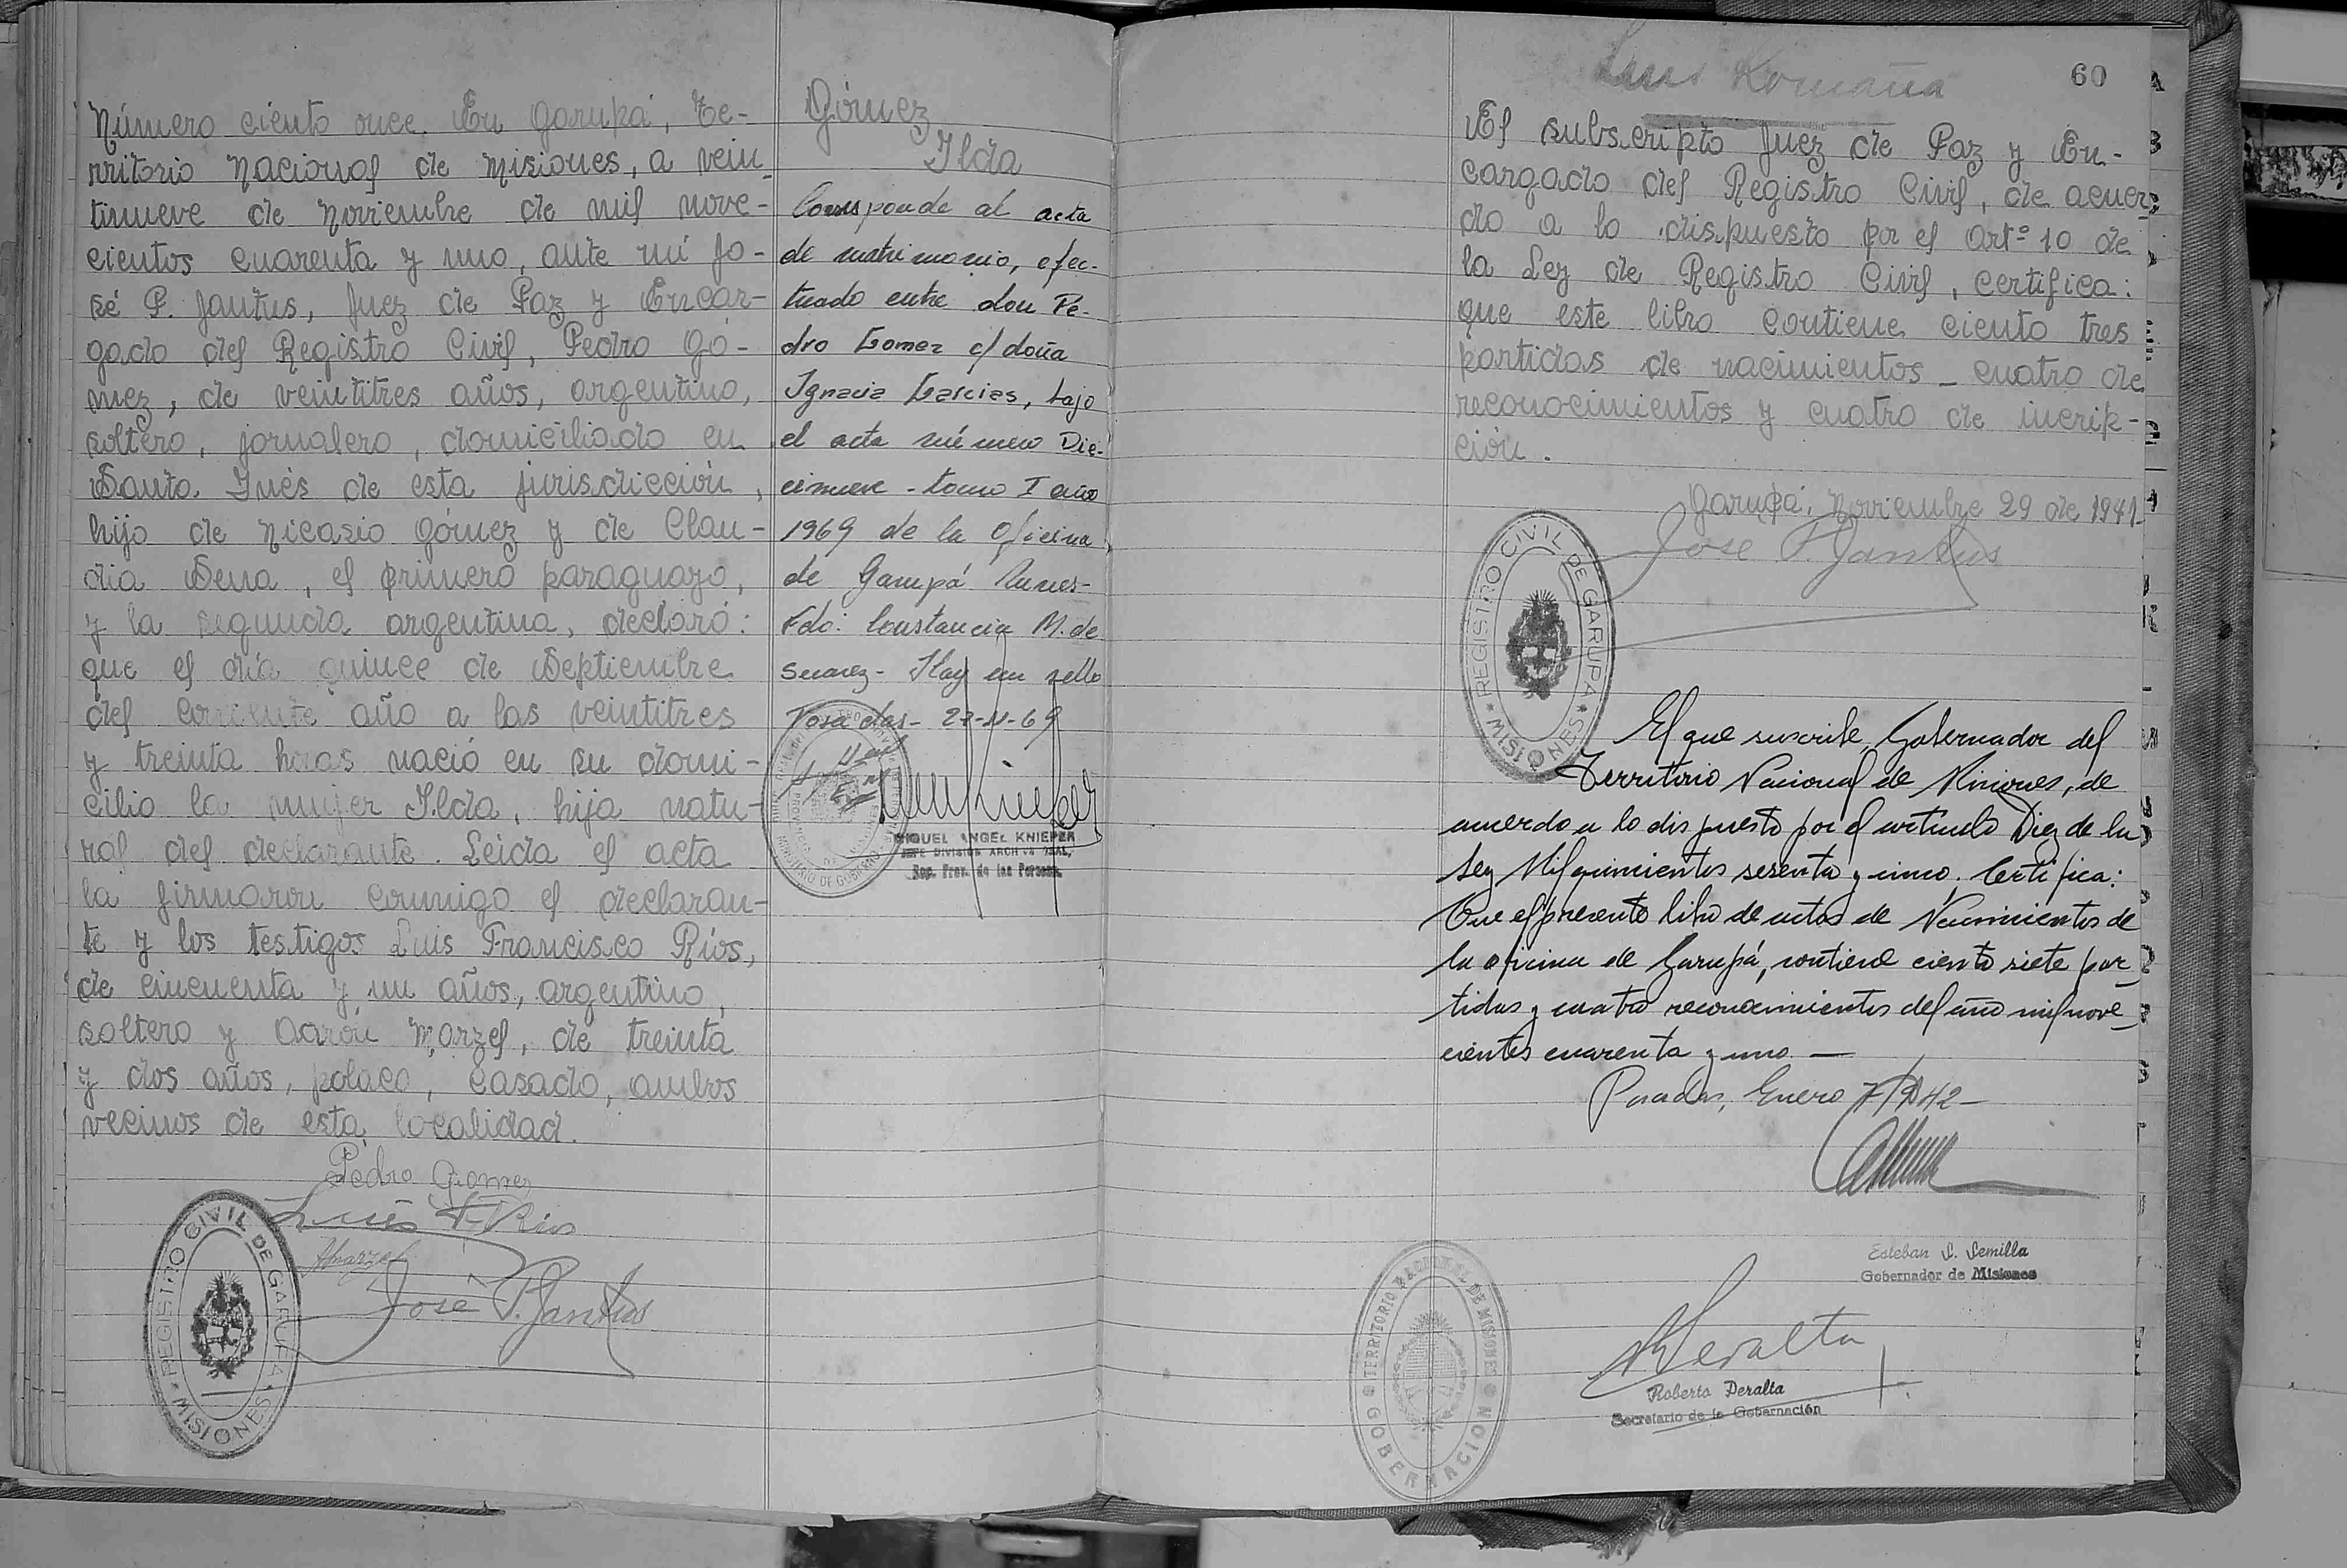 Número ciento once. En Garupá, Te-
rritorio Nacional de Misiones, a vein-
tinueve de Noviembre de mil nove-
cientos cuarenta y uno, ante mí Jo-
sé P. Jantus, Juez de Paz y Encar-
gado del Registro Civil, Pedro Gó-
mez, de veintitres años, argentino,
soltero, jornalero, domiciliado en
Santa Inés de esta jurisdicción,
hijo de Nicasio Gómez y de Clau-
dia Sena, el primero paraguayo,
y la segunda argentina, declaró:
que el día quince de Septiembre
del corriente año a las veintitres
y treinta horas nació en su domi-
cilio la mujer Ilda, hija natu-
ral del declarante. Leida el acta
la firmaron conmigo el declaran-
te y los testigos Luis Francisco Ríos,
de cincuenta y un años, argentino,
soltero y Aarón Marzel, de treinta
y dos años, polaco, casado, ambos
vecinos de esta localidad.
Pedro Gomez
Luis F. Rios
AMarzel
José P. Jantus
REGISTRO CIVIL DE GARUPA
MISIONES
Gómez
Ilda
Corresponde al acta
de matrimonio, efec-
tuado entre don Pe-
dro Gomez c/ doña
Ignacia Garcias, bajo
el acta número Die-
cinueve - tomo I año
1969 de la Oficina
de Garupá Mnes-
Fdo: Constancia M. de
Suarez - Hay un sello
Posadas - 27-11-69
MIGUEL ANGEL KNIEPER
JEFE DIVISION ARCHIVO GRAL.
Reg. Prov. de las Personas
MINISTERIO DE GOBIERNO
60
Luis Romaña
El subscripto Juez de Paz y En-
cargado del Registro Civil, de acuer-
do a lo dispuesto por el Artº 10 de
la Ley de Registro Civil, certifica:
que este libro contiene ciento tres
partidas de nacimientos - cuatro de
reconocimientos y cuatro de incrip-
ción.
Garupá, Noviembre 29 de 1941
José P. Jantus
REGISTRO CIVIL DE GARUPA
MISIONES
El que suscribe, Gobernador del
Territorio Nacional de Misiones, de
acuerdo a lo dispuesto por el artículo Diez de la
Ley Mil quinientos sesenta y cinco. Certifica:
Que el presente libro de actas de Nacimientos de
la oficina de Garupá, contiene ciento siete par-
tidas y cuatro reconocimientos del año mil nove-
cientos cuarenta y uno. —
Posadas, Enero 7/942-
Esteban S. Semilla
Gobernador de Misiones
TERRITORIO NACIONAL DE MISIONES
GOBERNACION
Peralta
Roberto Peralta
Secretario de la Gobernación